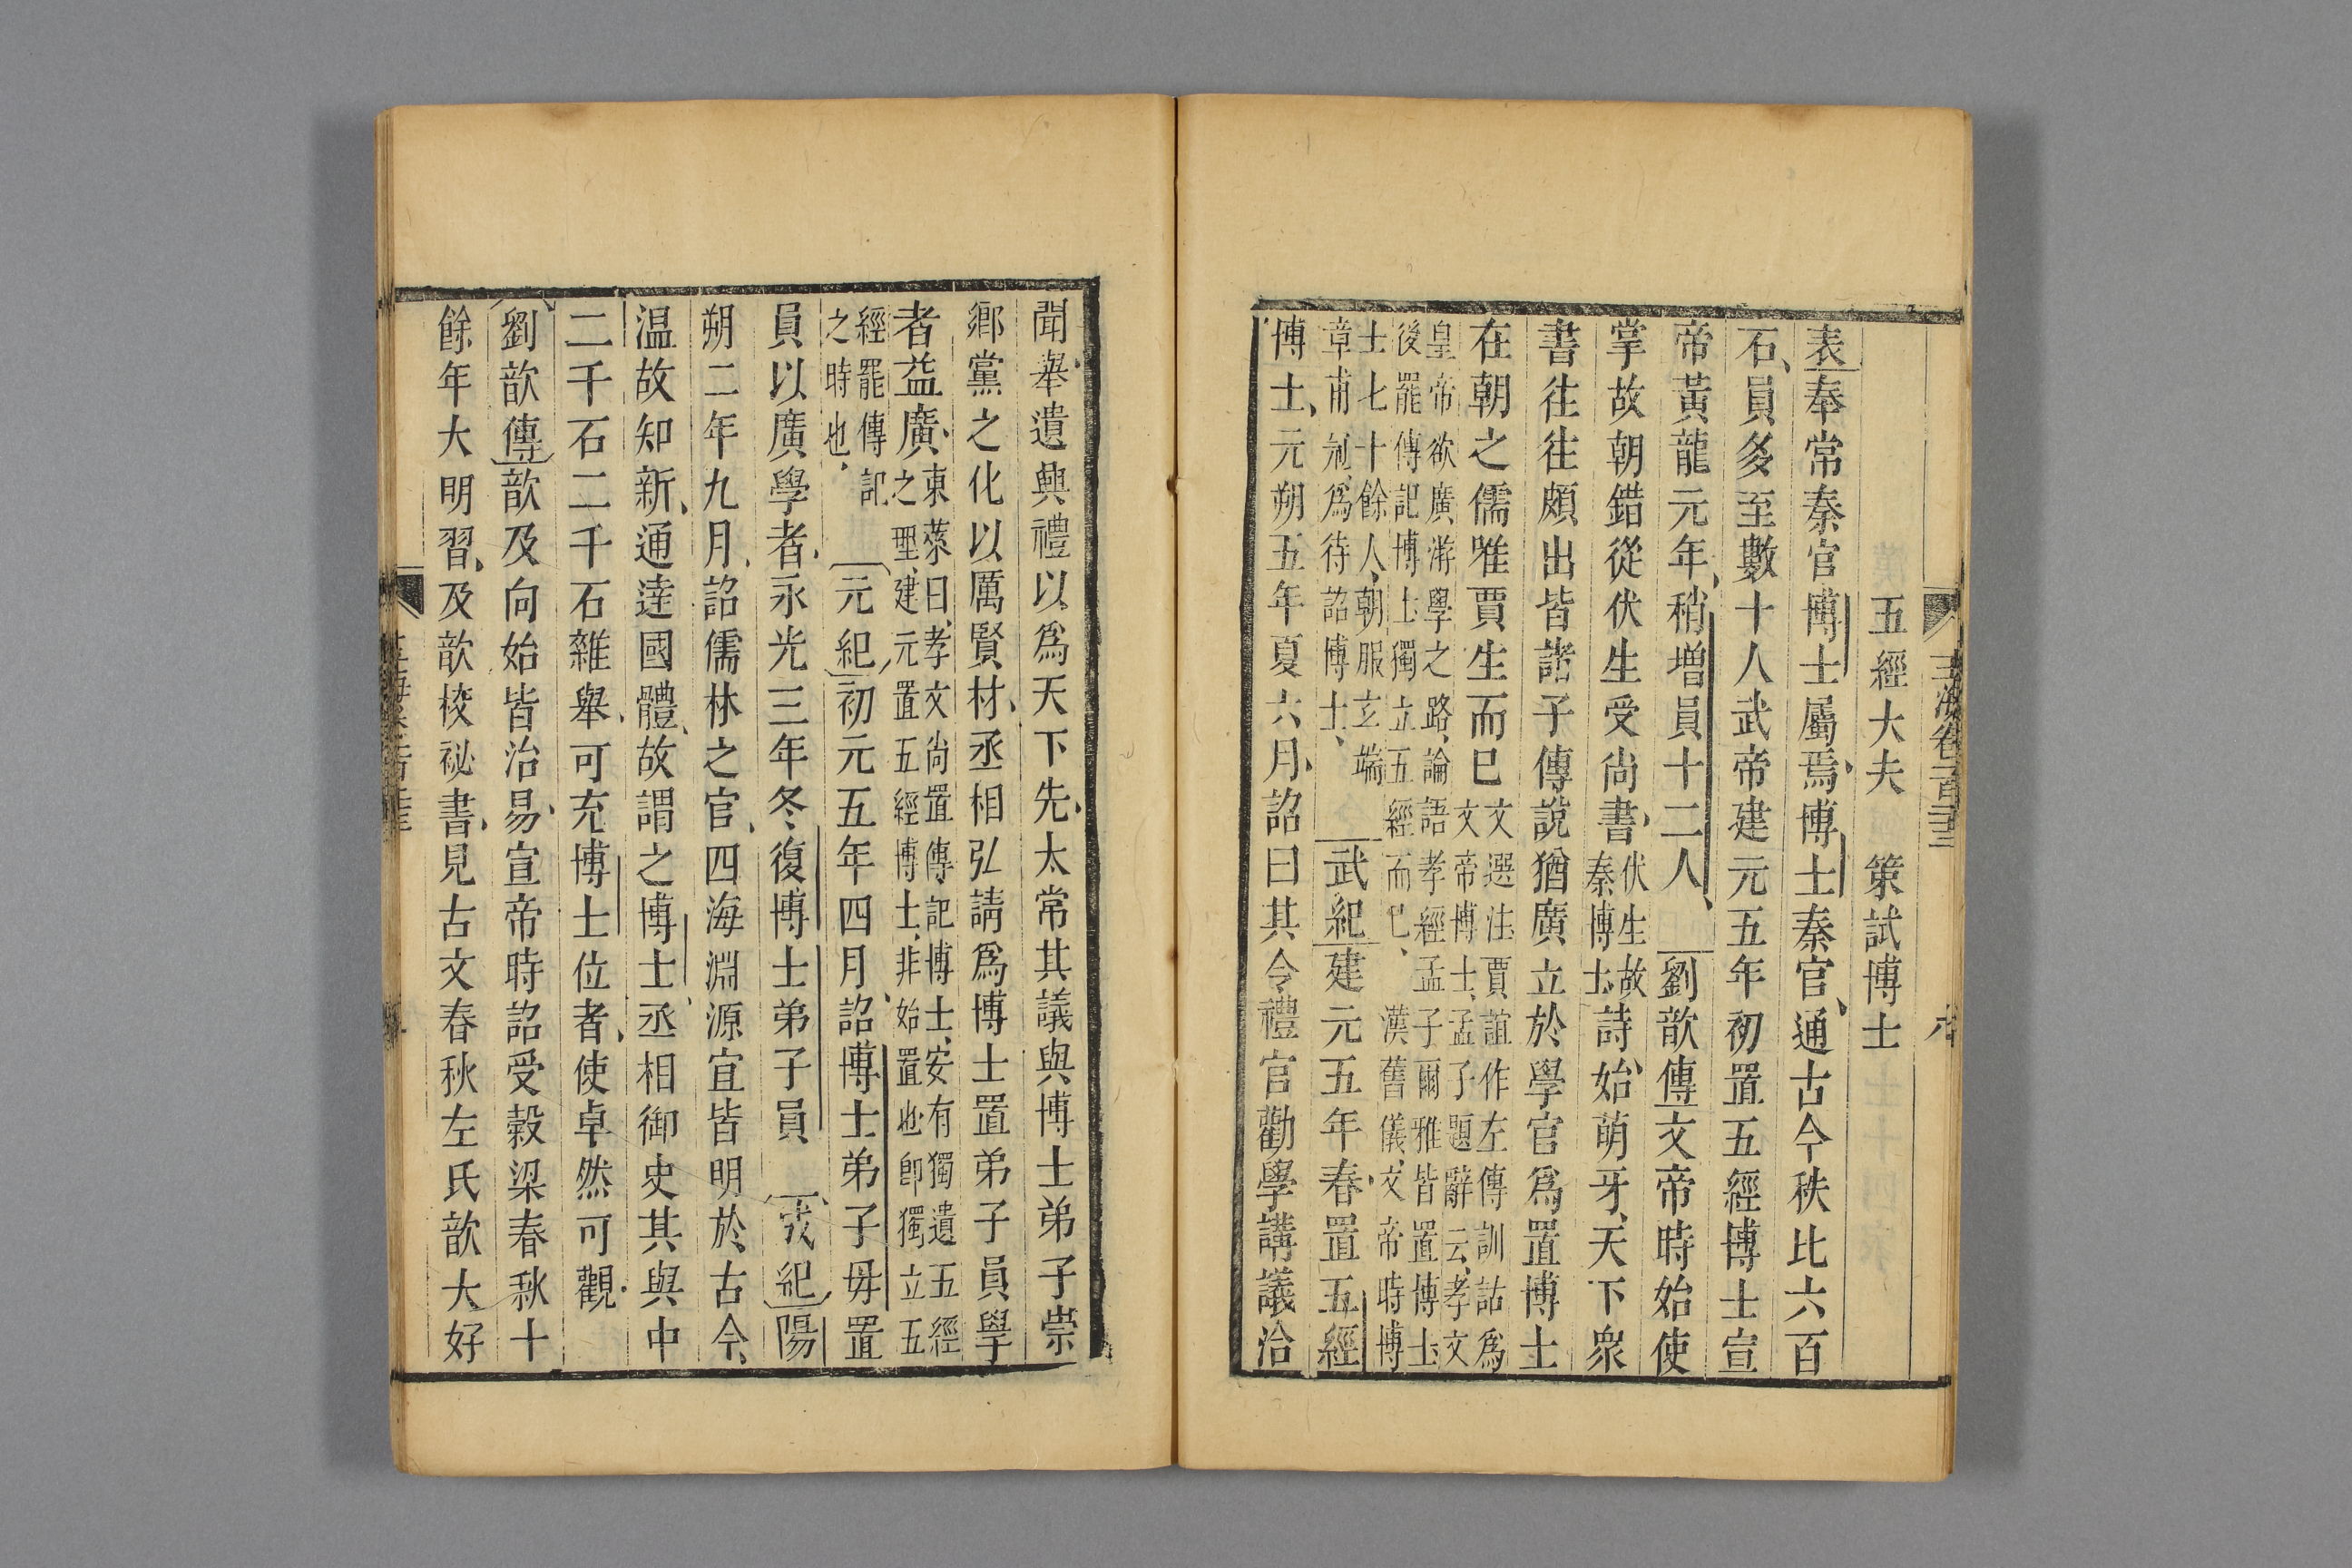 五經大夫　策試博士
表奉常秦官博士屬焉博士秦官通古今秩比六百
石員多至數十人武帝建元五年初置五經博士宣
帝黃龍元年稍增員十二人　劉歆傳文帝時始使
掌故朝錯從伏生受尚書伏生故秦博士詩始萌牙天下衆
書往往頗出皆諸子傳說猶廣立於學官爲置博士
在朝之儒唯賈生而已文選注賈誼作左傳訓詁爲文帝博士孟子題辭云孝文
皇帝欲廣游學之路論語孝經孟子爾雅皆置傳博士後罷傳記博士獨立五經而已　漢舊儀文帝時博
士七十餘人朝服玄端章甫冠爲待詔博士　武紀建元五年春置五經
博士元朔五年夏六月詔曰其令禮官勸學講議洽
聞舉遺興禮以爲天下先太常其議與博士弟子崇
鄉黨之化以厲賢材丞相弘請爲博士置弟子員學
者益廣東萊曰孝文尚置傳記博士安有獨遺五經之理建元置五經博士非始置也即獨立五
經罷傳記之時也　元紀初元五年四月詔博士弟子毋置
員以廣學者永光三年冬復博士弟子員　成紀陽
朔二年九月詔儒林之官四海淵源宜皆明於古今
温故知新通達國體故謂之博士丞相御史其與中
二千石二千石雜舉可充博士位者使卓然可觀
劉歆傳歆及向始皆治易宣帝時詔受穀梁春秋十
餘年大明習及歆校祕書見古文春秋左氏歆大好